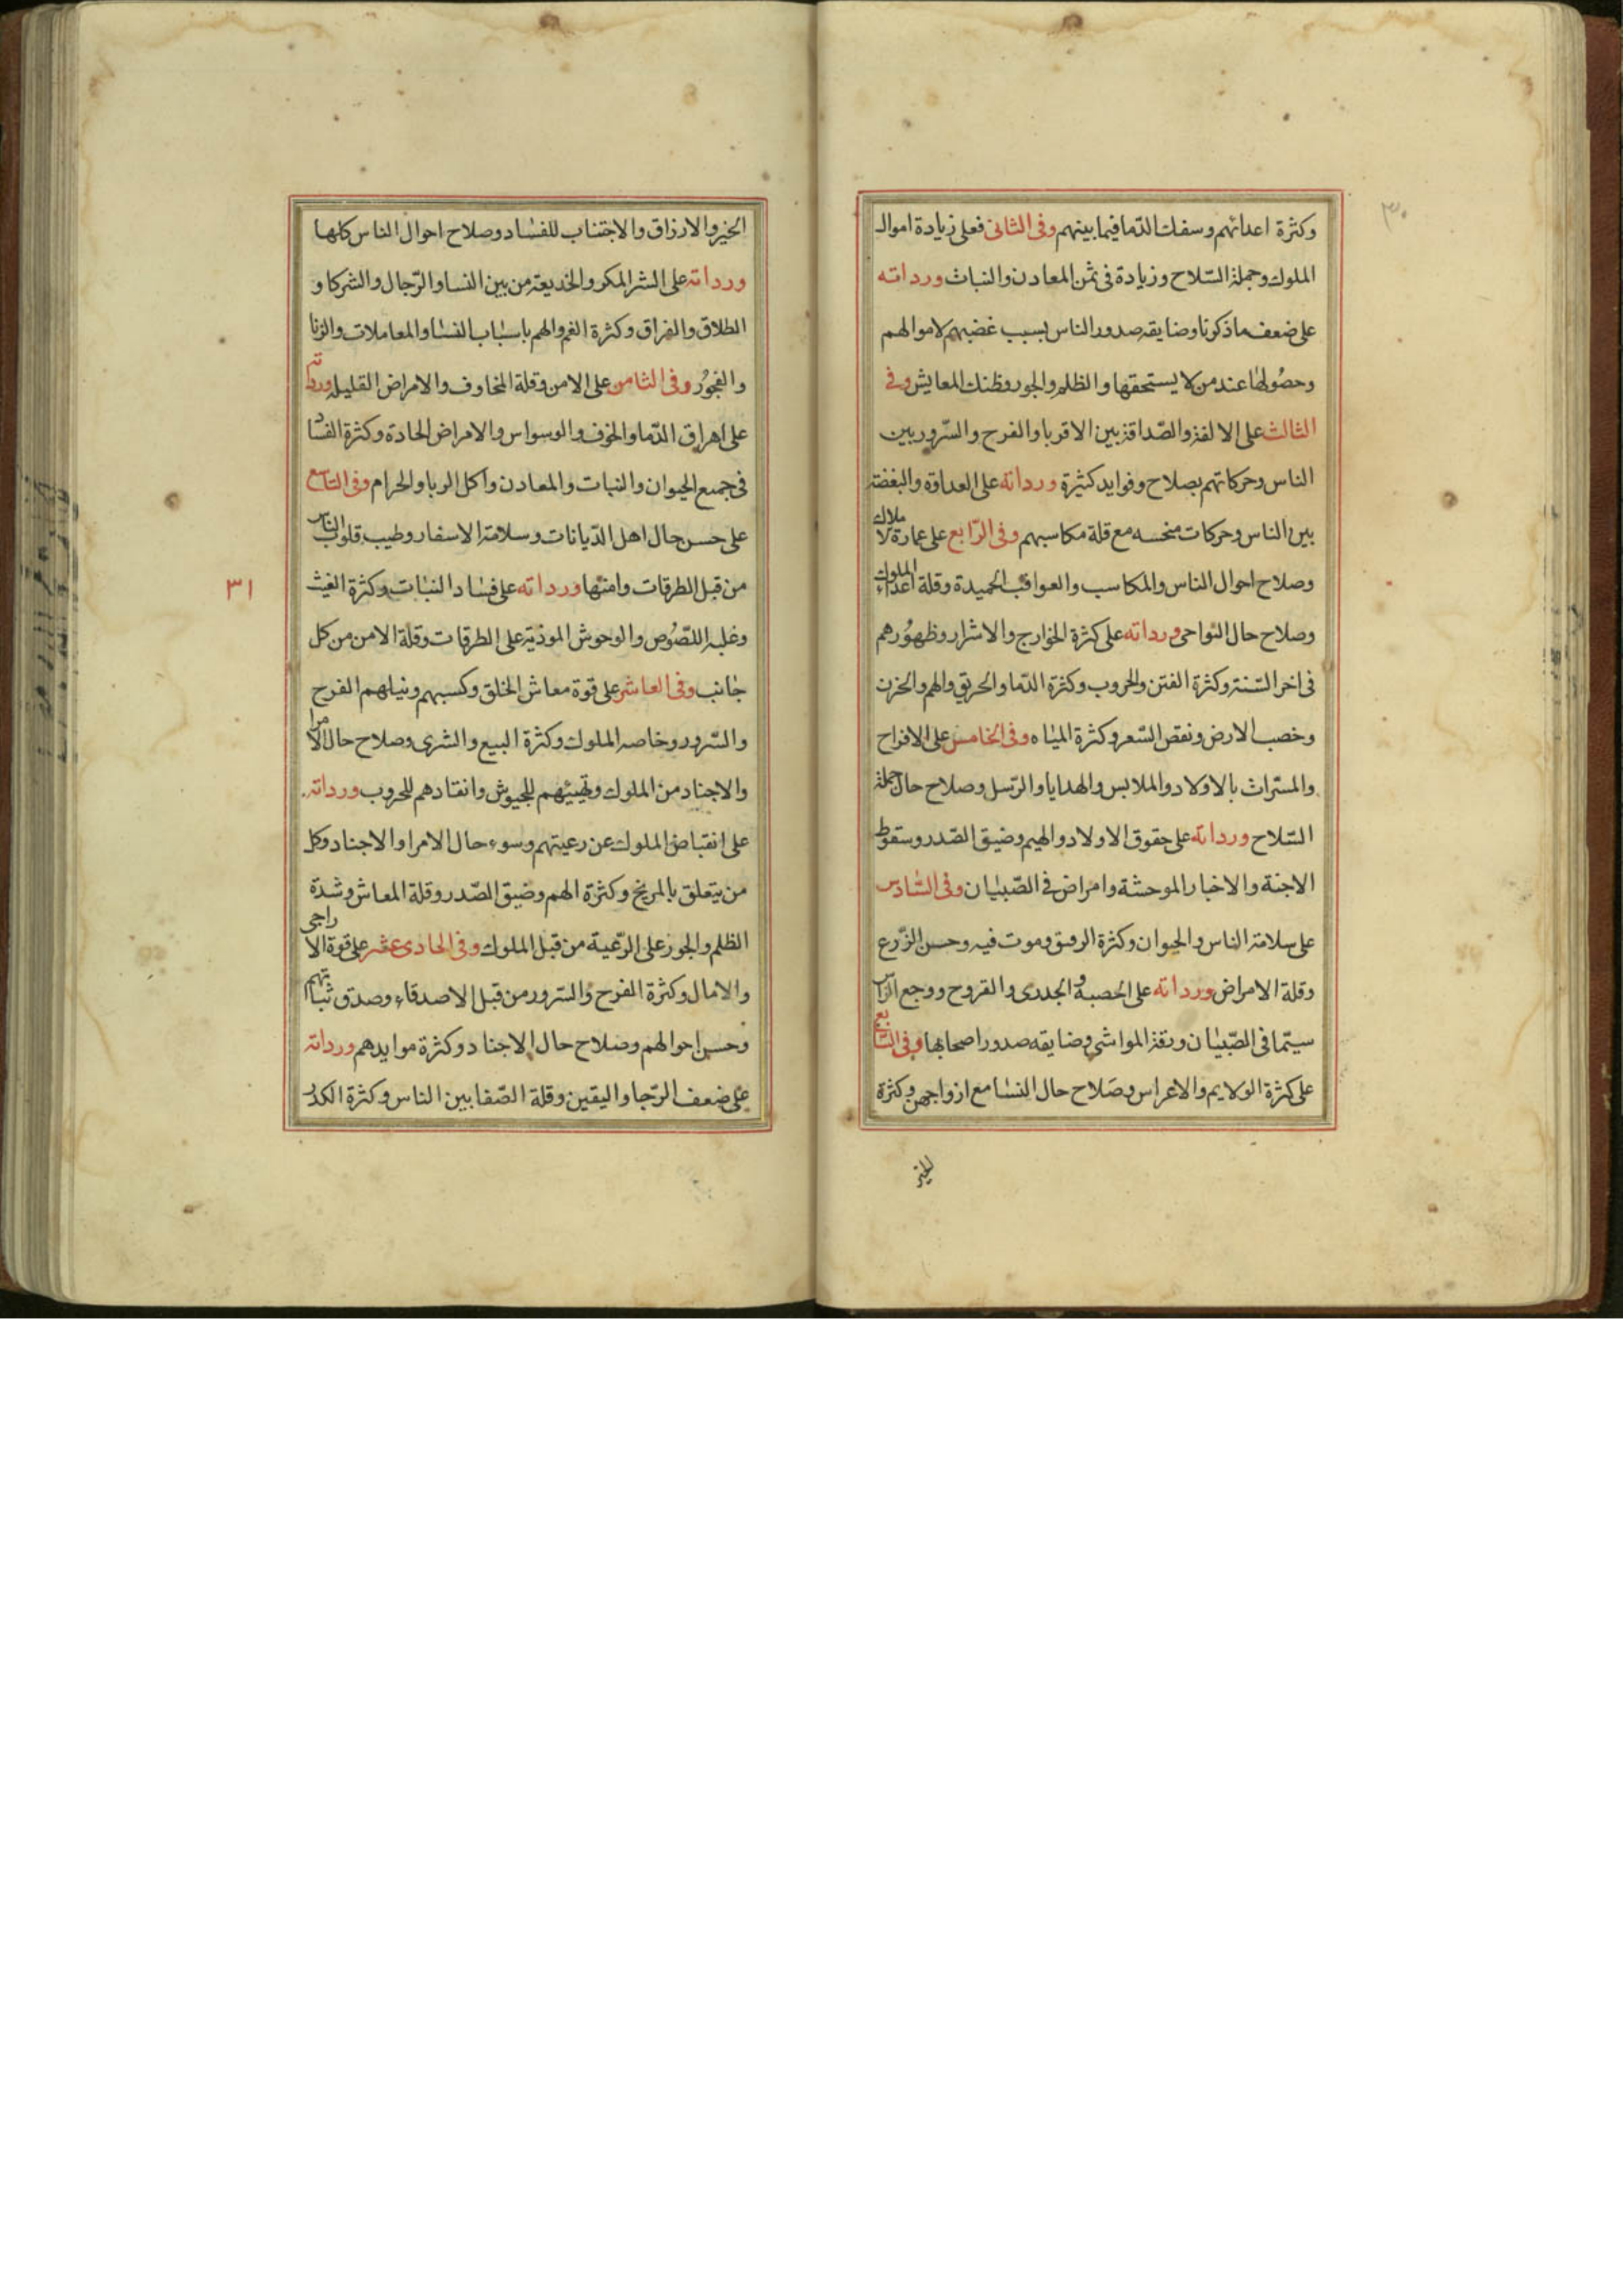 ٣٠
وكثرة اعدائهم وسفك الدما فيما بينهم وفى الثانى فعلى زيادة اموال
الملوك وجملة السّلاح وزيادة فى ثمن المعادن والنبات ورداته
على ضعف ما ذكرنا وضايقه صدور الناس بسبب غضبهم لاموالهم
وحصُولها عند من لا يستحقها والظلم والجور وظنك المعايش وفى
الثالث على الالفة والصّداقة بين الاقربا والفرح والسّرور بين
الناس وحركاتهم بصلاح وفوايد كثيرة ورداته على العداوة والبغضة
بين الناس وحركات منحسه مع قلة مكاسبهم وفى الرّابع على عمارة لاملاك
وصلاح احوال الناس والمكاسب والعواقب الحميدة وقلة اعداء الملوك
وصلاح حال النواحى ورداته على كثرة الخوارج والاشرار وظهوُرهم
فى اخر السّنة وكثرة الفتن والحروب وكثرة الدّما والحريق والهم والحزن
وخصب الارض ونقص السّعر وكثرة المياه وفى الخامس على الافراح
والمسّرات بالاولاد والملابس والهدايا والرّسل وصلاح حال حملة
السّلاح ورداته على حقوق الاولاد والهيم وضيق الصّدر وسقوط
الاجنة والاخبار الموحشة وامراض فى الصّبيان وفى السّادس
على سلامة الناس والحيوان وكثرة الرمق وموت فيه وحسن الزّرع
وقلة الامراض ورداته على الحصبة والجدرى والقروح ووجع الراس
سيّما فى الصّبيان ونقز المواشى وضايقه صدور اصحابها وفى السّابع
على كثرة الولايم والاعراس وصَلاح حال النسا مع ازواجهن وكثرة
الخير
الخير والارزاق والاجتناب للفساد وصلاح احوال الناس كلها
ورداته على الشر المكر والخديعة من بين النسا والرّجال والشركا و
الطلاق والفراق وكثرة الغم والهم باسباب النسا والمعاملات والزنا
والفجوُر وفى الثامن على الامن وقلة المخاوف والامراض القليله ورداته
على اهراق الدّما والخوف والوسواس والامراض الحادة وكثرة الفساد
فى جميع الحيوان والنبات والمعادن واكل الربا والحرام وفى التاسع
على حسن حال اهل الدّيانات وسلامة الاسفار وطيب قلوب الناس
من قبل الطرقات وامنها ورداته على فساد النبات وكثرة الغيث
٣١
وغلبه اللصُوص والوحوش الموذية على الطرقات وقلة الامن من كل
جانب وفى العاشر على قوة معاش الخلق وكسبهم ونيلهم الفرح
والسّرور وخاصه الملوك وكثرة البيع والشرى وصلاح حال الامرا
والاجناد من الملوك وتهيئهم للجيوش وانقادهم للحروب ورداته
على انقباض الملوك عن رعيتهم وسوء حال الامرا والاجناد وكل
من يتعلق بالمريخ وكثرة الهم وضيق الصّدر وقلة المعاش وشدة
الظلم والجور على الرّعية من قبل الملوك وفى الحادى عشر على قوة الاراجى
والامال وكثرة الفرح والسرور من قبل الاصدقاء وصدق نياتهم
وحسن احوالهم وصلاح حال الاجناد وكثرة موايدهم ورداته
على ضعف الرّجا واليقين وقلة الصّفا بين الناس وكثرة الكدر